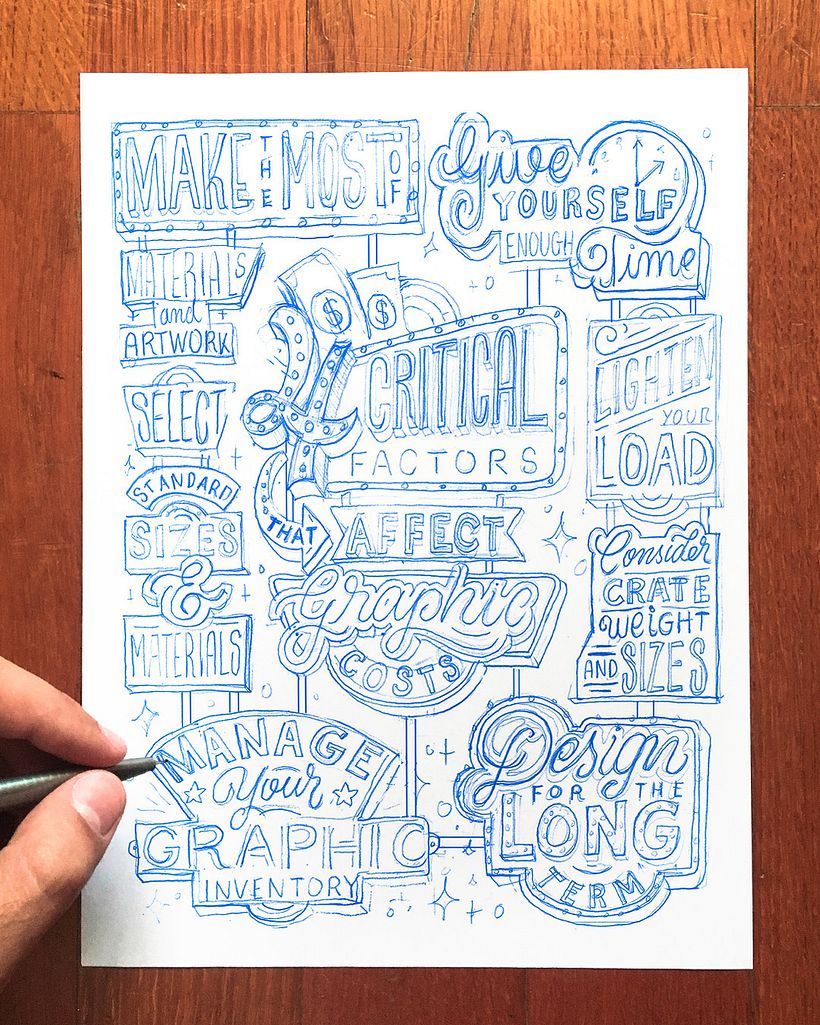 MAKE THE MOST OF
MATERIALS
and
ARTWORK
SELECT
STANDARD
SIZES
&
MATERIALS
MANAGE
your
GRAPHIC
INVENTORY
$ $
4 CRITICAL
FACTORS
THAT AFFECT
Graphic
COSTS
Give
YOURSELF
ENOUGH
Time
LIGHTEN
YOUR
LOAD
Consider
CRATE
WEIGHT
AND SIZES
Design
FOR THE
LONG
TERM